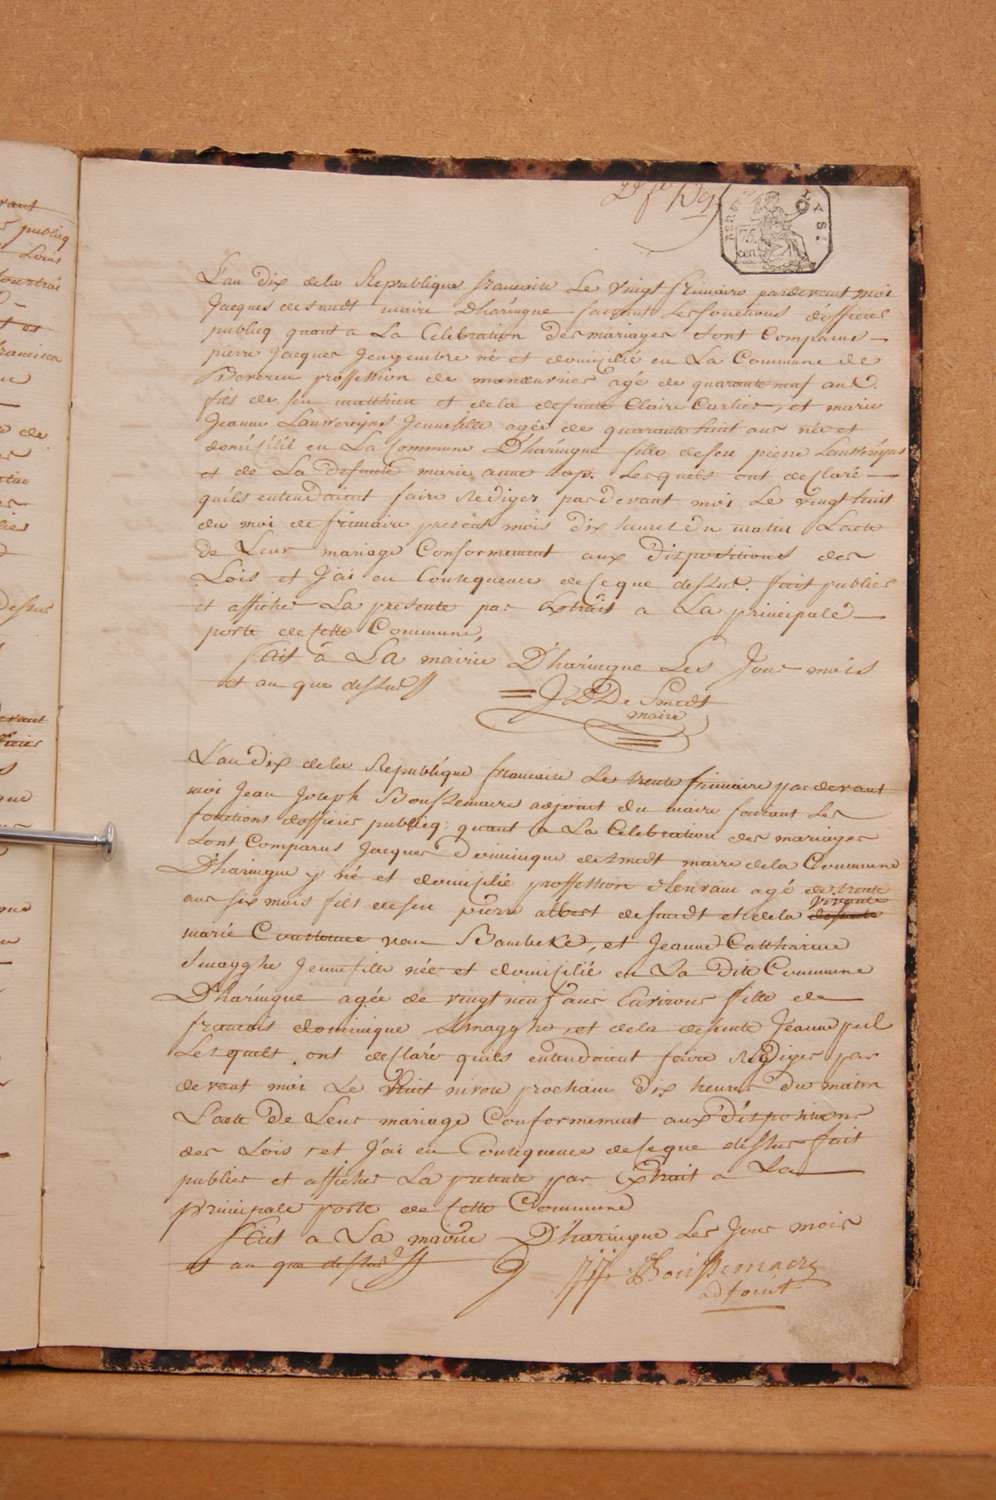 2d fe
REP. FRA.
75
cen
L'an dix de la Republique francaise Le vingt frimaire pardevant moi
Jacques desmedt maire D'haringue faisant Les fonctions d'officier
publicq quant a La Celebration des mariages sont Comparus —
pierre Jacques né et domicilié en La Commune de
proffession de manoeuvrier agé de quarante neuf ans.
fils de feu matthieu et de la defunte Claire Carlier, et marie
Jeanne Lauwereÿns Jeune fille agée de quarante huit ans née et
domisilié en La Commune D'haringue fille defeu pierre Lauwereÿns
et de La defunte marie anne Les quels ont declaré —
quils entendoient faire Rediger pardevant moi Le vingt huit
du moi de frimaire present mois dix heures du matin L'acte
de Leur mariage Conformement aux dispositions des
Lois et J'ai en Consequence de Ceque dessus fait publier
et afficher La presente par Extrait a La principale —
porte de Cette Commune,
fait a La mairie D'haringue Les Jour mois
et an que dessus
J D De Smedt
maire
L'an dix de la Republique francaise Le trente frimaire par devant
moi Jean Joseph Boussemaere adjoint du maire faisant Les
fonctions d'officier publicq quant a La Celebration des mariages
Sont Comparus Jacques Dominique desmedt maire de la Commune
D'haringue y né et domisilié proffession agé de trente
ans six mois fils de feu pierre albert desmedt et de la defunte
marie Constance van Bambeke, et Jeanne Cattharine
Smagghe Jeune fille née et domisilié en La dite Commune
D'haringue agée de vingt neuf ans Environs fille de
francois dominique Smagghe, et de la defunte Jeanne
Lesquels ont declaré quils entendoient faire Rediger par
devant moi Le huit nivose prochain dix heures du matin
L'acte de Leur mariage Conformement aux dispositions
des Lois, et J'ai en Consequence de Ceque dessus fait
publier et afficher La presente par Extrait a La
principale porte de Cette Commune
fait a La mairie D'haringue Les Jour mois
et an que dessus
JJ Boussemaere
adjoint